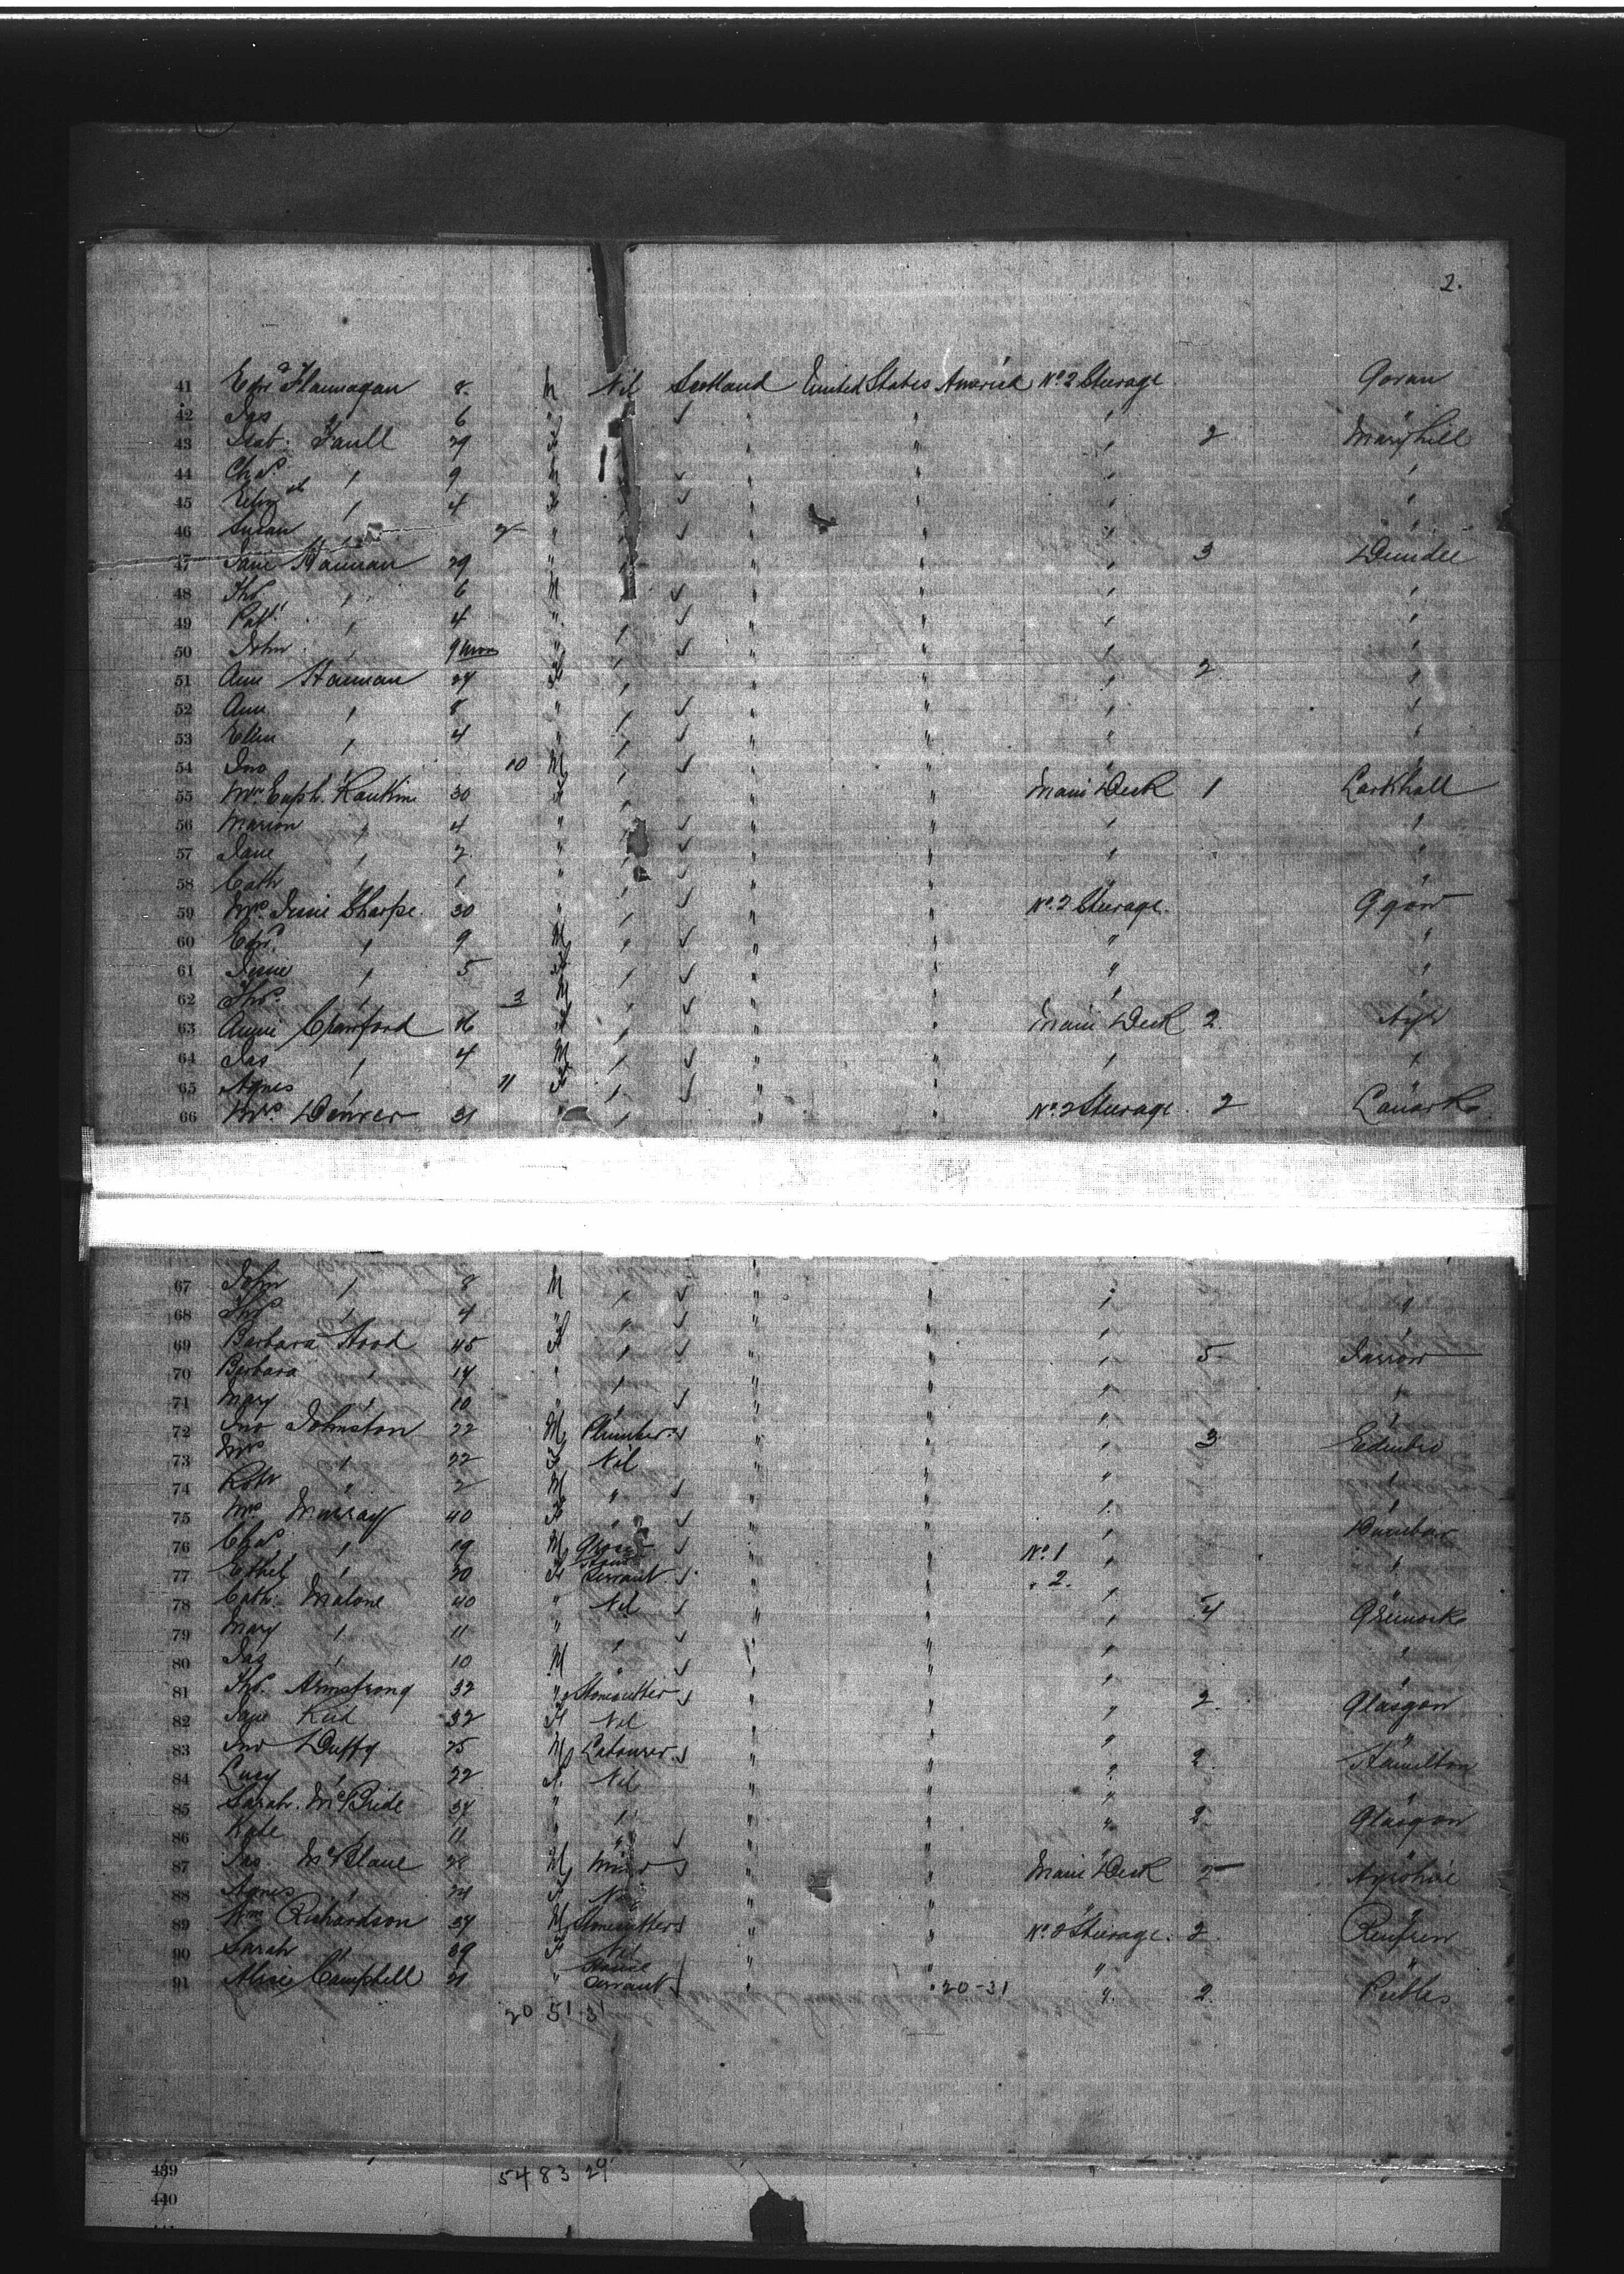 2.
41 Edwd Flannagan 8. M Nil Scotland United States America No. 2 Steerage Govan
42 Jas 6 " " "
43 Isab. Faull 29 F " " 2 Maryhill
44 Chas. " 9 M " " "
45 " 4 F " " "
46 Susan 2 " " " "
47 Jane 29 " " " 3 Dundee
48 Thos " 6 M " " "
49 Patk " 4 " " " "
50 John " 9 mos " " " "
51 Ann 27 F " " 2 "
52 Ann " 8 " " " "
53 Ellen " 4 " " " "
54 Jno " 10 M " " "
55 Mrs Euph. Rankin 30 F " " Main Deck 1 Larkhall
56 Marion " 4 " " " "
57 Jane " 2 " " " "
58 Cath " 1 " " " "
59 Mrs. Jessie Sharpe. 30 " " " No. 2 Steerage. Ggow
60 Edwd " 9 M " " "
61 Jessie " 5 F " " "
62 Thos. " 3 M " " "
63 Annie Crawford 26 F " " Main Deck 2. Ayr
64 Jas " 4 M " " "
65 Agnes " 11 F " " "
66 Mrs. Denver 31 " " " No. 2 Steerage. 2 Lanark
67 John " 8 M " " "
68 Thos " 4 " " " "
69 Barbara Hood 45 F " " 5 Jarrow
70 Barbara " 14 " " " "
71 Mary " 10 " " " "
72 Jno Johnston 22 M Plumber " " 3 Edinbro
73 Mrs " 22 F Nil " " "
74 Robt " 2 M " " " "
75 Mrs. Murray 40 F " " " Dunbar
76 Chas " 19 M Grocer " No. 1 " "
77 Ethel " 20 F House Servant " " 2. " "
78 Cath. Malone 40 " Nil " " 4 Greenock
79 Mary " 11 " " " " "
80 Jas " 10 M " " " "
81 Thos. Armstrong 32 " Stonecutter " " 2. Glasgow
82 Jane Reid 32 F Nil " " "
83 Jno Duffy 25 M Labourer " " 2. Hamilton
84 Lucy " 22 F. Nil " " "
85 Sarah. McBride 34 " " " " 2. Glasgow
86 Kate " 11 " " " " "
87 Jas. McBlane 28 M Miner " Main Deck 2 Ayrshire
88 Agnes " 24 F Nil " " "
89 Wm Richardson 34 M Stonecutter " No. 2 Steerage. 2. Renfrew
90 Sarah " 39 F Nil " " "
91 Campbell 21 " House Servant " 20-31 " 2. Peebles
20 51 31
439 54 83 29
440